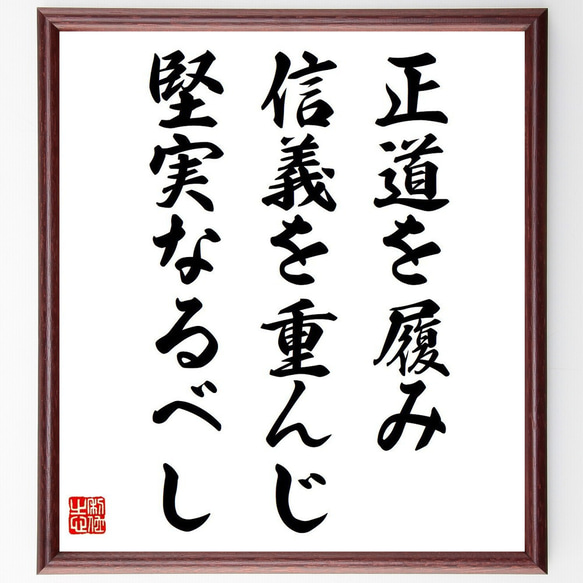 正道を履み
信義を重んじ
堅実なるべし